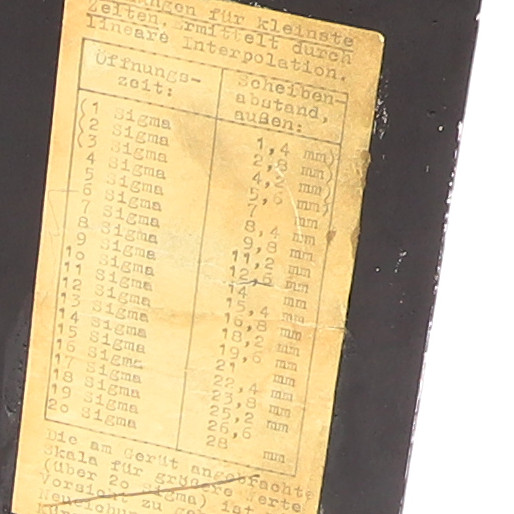 ngen für kleinste
Zeiten, ermittelt durch
lineare Interpolation.
Öffnungs-
zeit:
Scheiben-
abstand,
außen:
(1 Sigma 1,4 mm)
(2 Sigma 2,8 mm)
(3 Sigma 4,2 mm)
4 Sigma 5,6 mm
5 Sigma 7 mm
6 Sigma 8,4 mm
7 Sigma 9,8 mm
8 Sigma 11,2 mm
9 Sigma 12,6 mm
10 Sigma 14 mm
11 Sigma 15,4 mm
12 Sigma 16,8 mm
13 Sigma 18,2 mm
14 Sigma 19,6 mm
15 Sigma 21 mm
16 Sigma 22,4 mm
17 Sigma 23,8 mm
18 Sigma 25,2 mm
19 Sigma 26,6 mm
20 Sigma 28 mm
Die am Gerät angebrachte
Skala für größere Werte
(über 20 Sigma) ist
Vorsicht zu